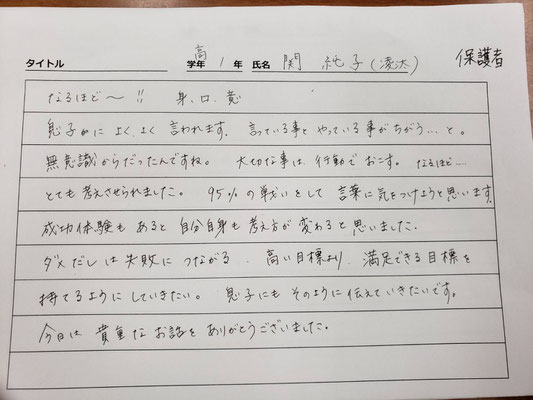 保護者
タイトル 学年 高1年 氏名 関 純子(凌汰)
なるほど〜!! 身、口、意
息子かに よく、よく 言われます。言っている事とやっている事がちがう…と。
無意識からだったんですね。 大切な事は、行動でおこす。 なるほど…
とても考えさせられました。 95%の戦いをして 言葉に気をつけようと思います。
成功体験もあると 自分自身も考え方が変わると思いました。
ダメだしは失敗につながる、高い目標より、満足できる目標を
持てるようにしていきたい。 息子にもそのように伝えていきたいです。
今日は貴重なお話をありがとうございました。